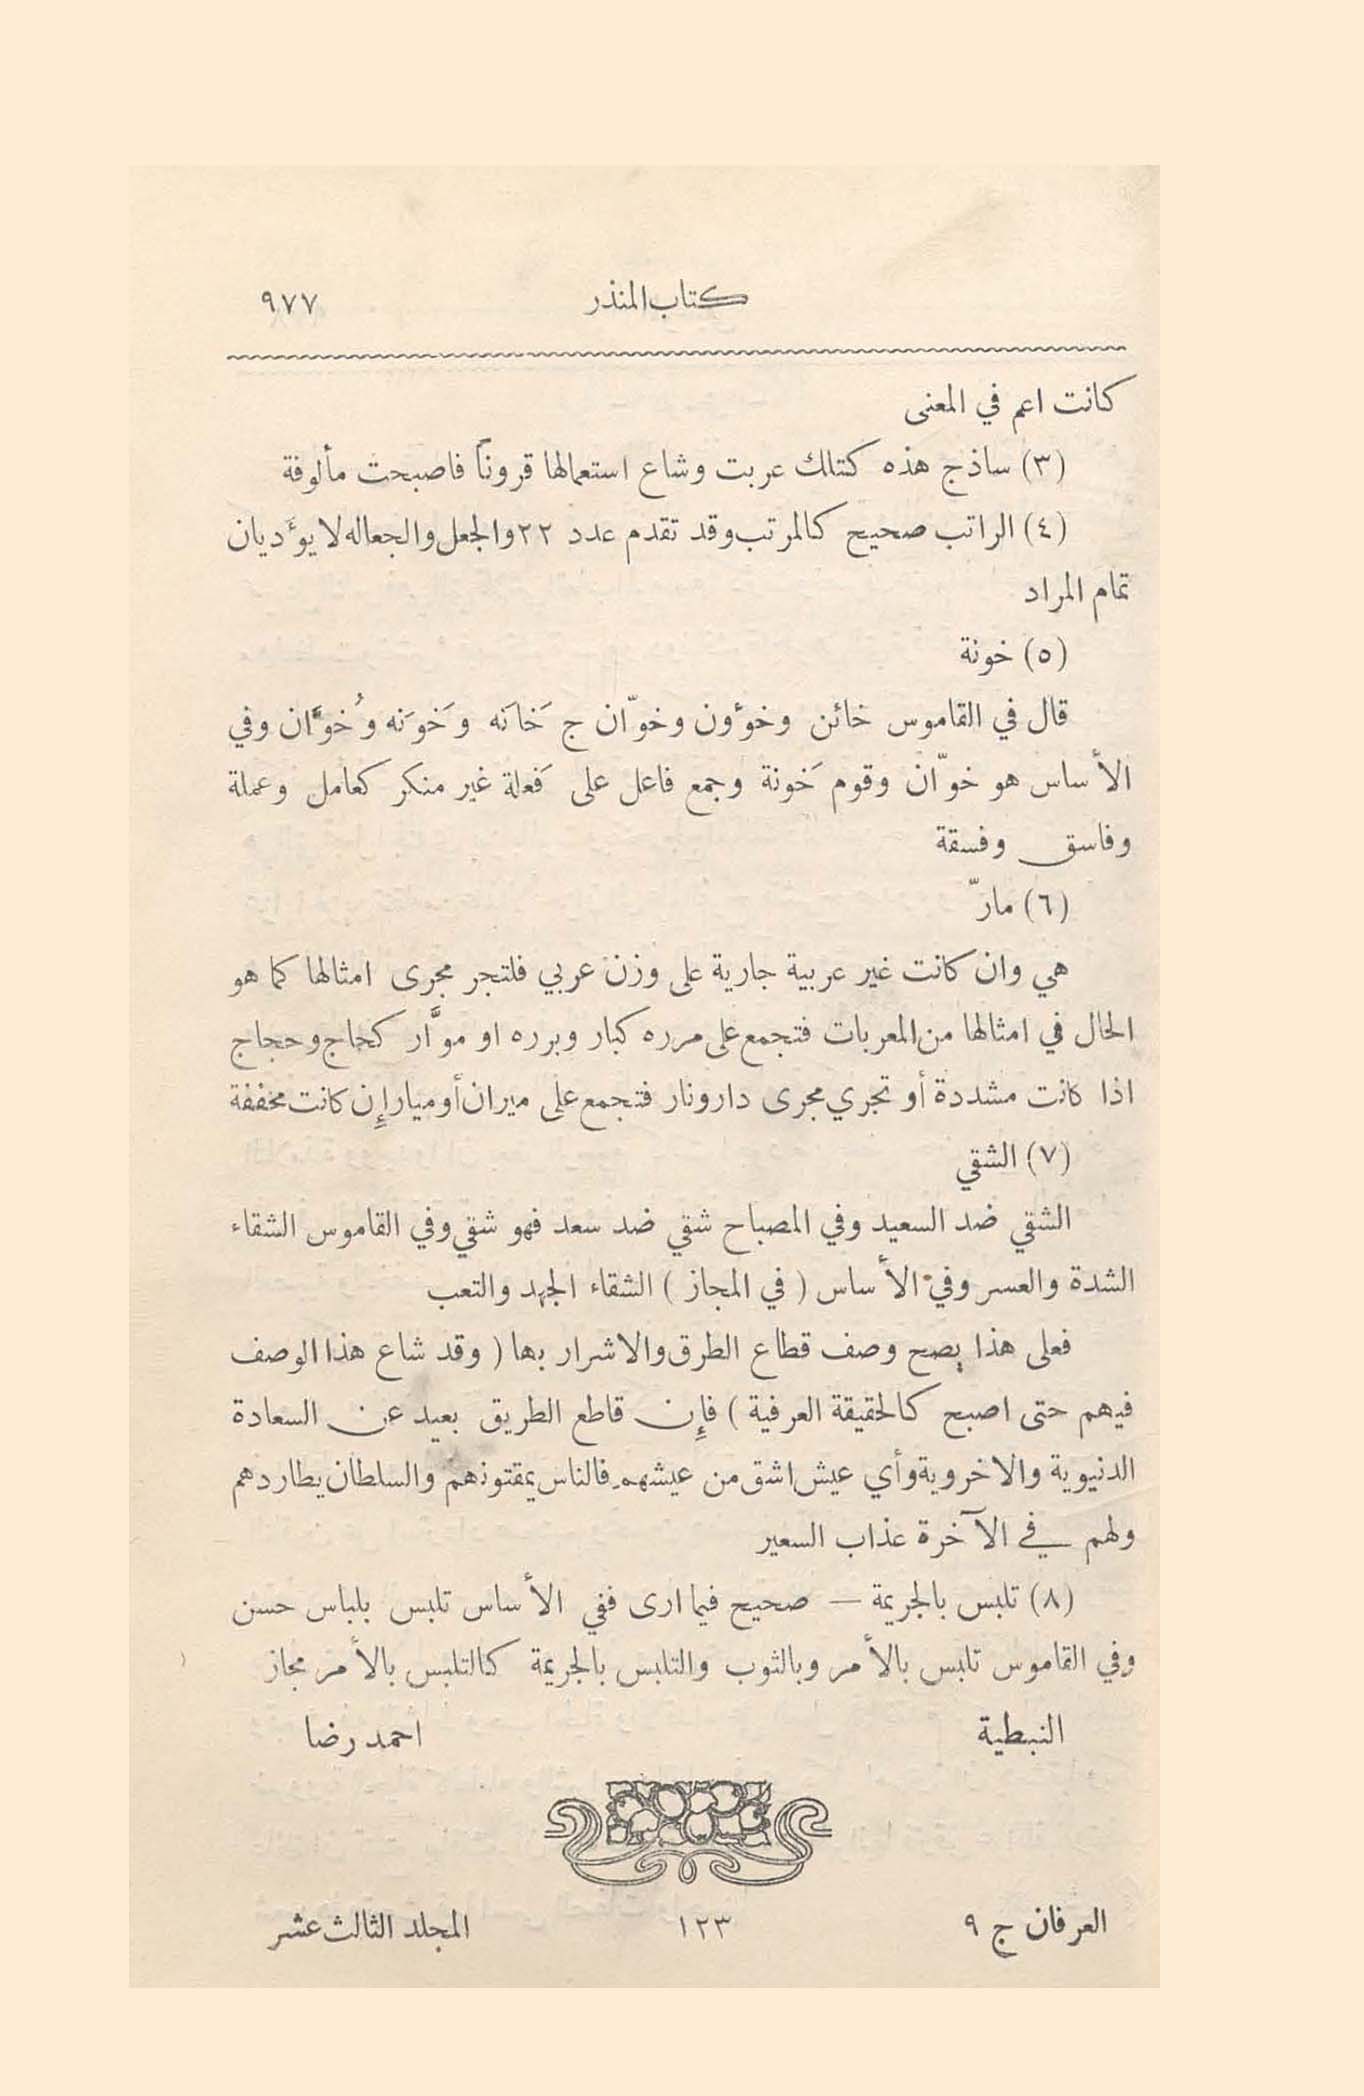 كتاب المنذر ٩٧٧
كانت اعم في المعنى
(٣) ساذج هذه كتلك عربت وشاع استعمالها قروناً فاصبحت مألوفة
(٤) الراتب صحيح كالمرتب وقد تقدم عدد ٢٢ والجعل والجعاله لا يوءديان
تمام المراد
(٥) خونة
قال في القاموس خائن وخؤون وخوّان ج خَانَه وخَوَنه وخُوَّان وفي
الأساس هو خوّان وقوم خَونة وجمع فاعل على فَعلة غير منكر كعامل وعملة
وفاسق وفسقة
(٦) مارّ
هي وان كانت غير عربية جارية على وزن عربي فلتجر مجرى امثالها كما هو
الحال في امثالها من المعربات فتجمع على مرره كبار وبرره او موَّار كحاج وحجاج
اذا كانت مشددة أو تجري مجرى دار ونار فتجمع على ميران أو ميار إِن كانت مخففة
(٧) الشقي
الشقي ضد السعيد وفي المصباح شقي ضد سعد فهو شقي وفي القاموس الشقاء
الشدة والعسر وفي الأساس ( في المجاز ) الشقاء الجهد والتعب
فعلى هذا يصح وصف قطاع الطرق والاشرار بها ( وقد شاع هذا الوصف
فيهم حتى اصبح كالحقيقة العرفية ) فإِن قاطع الطريق بعيد عن السعادة
الدنيوية والاخروية وأي عيش اشق من عيشهم فالناس يمقتونهم والسلطان يطاردهم
ولهم في الآخرة عذاب السعير
(٨) تلبس بالجريمة — صحيح فيما ارى ففي الأساس تلبس بلباس حسن
وفي القاموس تلبس بالأمر وبالثوب والتلبس بالجريمة كالتلبس بالأمر مجاز
النبطية احمد رضا
العرفان ج ٩ ١٢٣ المجلد الثالث عشر